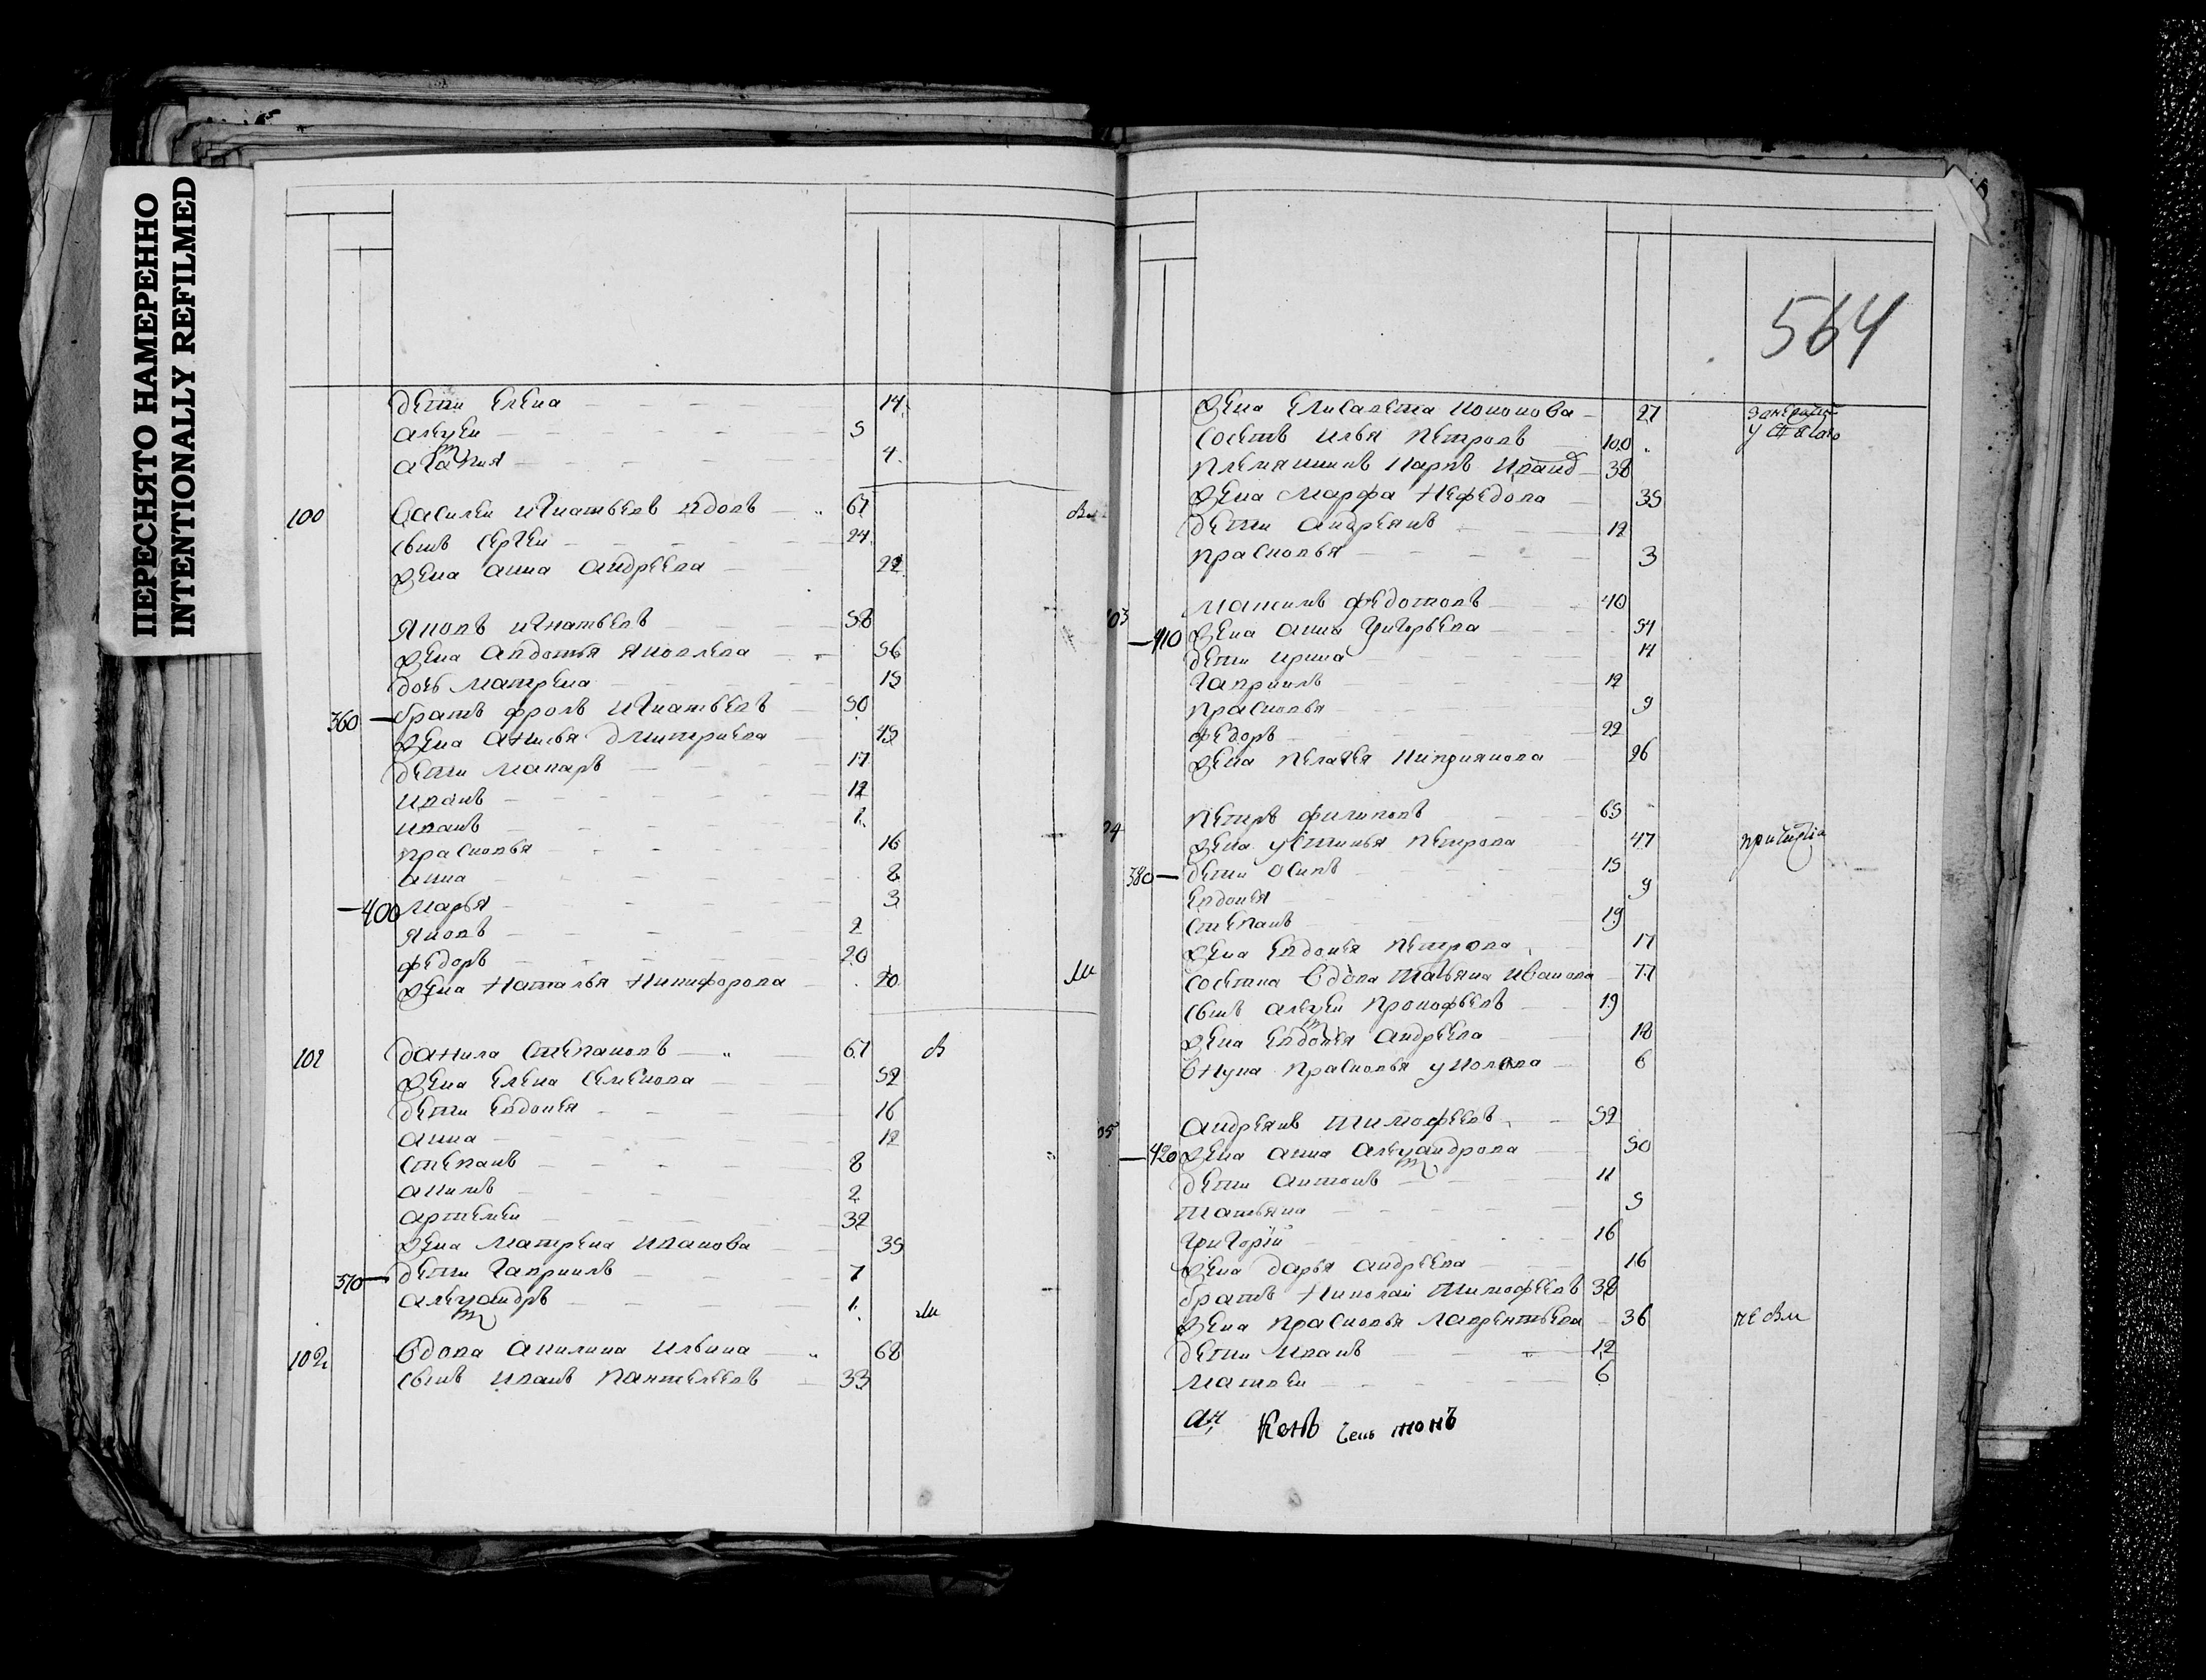 ПЕРЕСНЯТО НАМЕРЕННО
INTENTIONALLY REFILMED
дети Елена 14
алеѯеи 5
агафия 4
100 Василеи игнатьевъ вдовъ 61
сынъ Сергеи 24
жена анна андреева 22
Яковъ игнатьевъ 58
жена авдотья яковлева 56
дочь матрена 15
360 братъ фролъ игнатьевъ 50
жена анисья дмитриева 45
дети макаръ 17
иванъ 12
иванъ 1
прасковья 16
анна 8
400 марья 3
яковъ 2
федоръ 20
жена наталья никифорова 20
101 данила степановъ 61
жена елена семенова 52
дети евдокея 16
анна 12
степанъ 8
акимъ 2
артемеи 32
жена матрена иванова 35
370 дети гавриилъ 7
алеѯандръ 1
102 вдова акилина ильина 68
сынъ иванъ пантелеевъ 33
564
жена елисавета кононова 27
соседъ илья петровъ 100
племянникъ карпъ иванъ 38
жена марфа нефедова 35
дети андреянъ 12
прасковья 3
103 максимъ федотовъ 40
410 жена анна григорьева 51
дети ирина 14
гавриилъ 12
прасковья 9
федоръ 22
жена пелагея киприянова 26
04 петръ филиповъ 65
жена устинья петрова 47
380 дети осипъ 15
евдокея 9
степанъ 19
жена евдокея петрова 17
соседка вдова татьяна иванова 77
сынъ алеѯеи прокофьевъ 19
жена евдокея андреева 18
внука прасковья 6
05 андреянъ тимофеевъ 52
420 жена анна алеѯандрова 50
дети антонъ 11
татьяна 5
григорiй 16
жена дарья андреева 16
братъ николаи тимофеевъ 38
жена прасковья лаврентьева 36
дети иванъ 12
матвеи 6